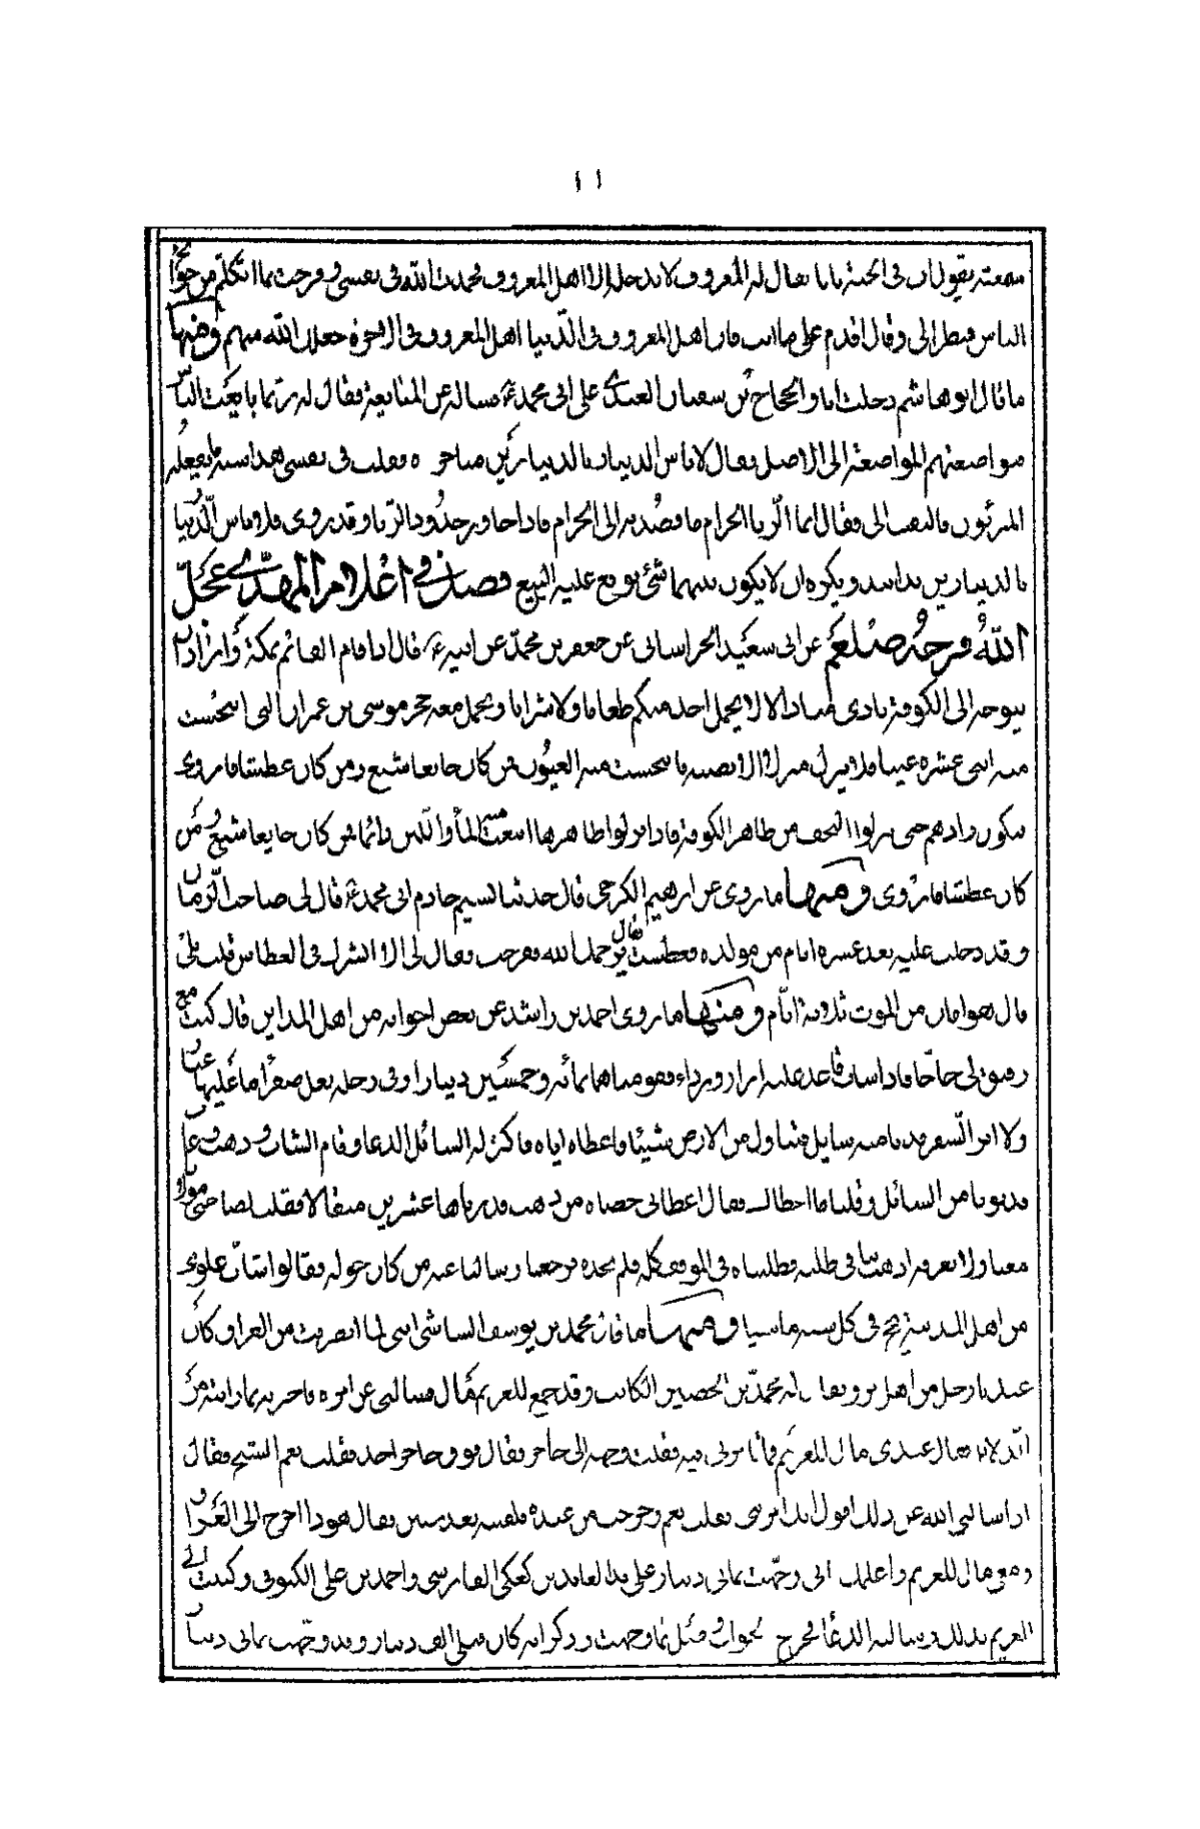 ١١
سمعته يقول ان في الجنة بابا يقال له المعروف لا يدخله الا اهل المعروف فحمدت الله في نفسي وفرحت بما اتكلم من حوائج
الناس فنظر الي وقال قدم على ما انت فان اهل المعروف في الدنيا اهل المعروف في الاخرة جعلك الله منهم ومنها
ما قال ابو هاشم دخلت انا والحجاج بن سفيان العبدي على ابي محمد ع فساله عن المبايعة فقال له ربما بايعت الناس
مواضعتهم المواضعة الى الاصل فقال لا باس الدينار بالدينارين فقلت في نفسي هذا شبه ما يفعله
المربئون فالتفت الي فقال انما الربا الحرام ما قصد به الى الحرام فاذا جاوز حدود الربا وقد زوى فلا باس الدنيا
بالدينارين يدا بيد ويكره ان لا يكون بينهما شئ يوقع عليه البيع فصل في اعلام المهدي عجل
الله فرجه عن ابي سعيد الخراساني عن جعفر بن محمد عن ابيه ع قال اذا قام القائم بمكة واراد ان
يتوجه الى الكوفة نادى مناد الا لا يحمل احد منكم طعاما ولا شرابا ويحمل معه حجر موسى بن عمران التي انبجست
منه اثني عشره عينا فلا ينزل منزلا الا نصبه فانبجست منه العيون فمن كان جايعا شبع ومن كان عطشانا روى
فيكون زادهم حتى ينزلوا النجف من ظاهر الكوفة فاذا نزلوا ظاهرها انبعث منه الماء واللبن دائما فمن كان جايعا شبع ومن
كان عطشانا روى ومنها ما روى عن ابرهيم الكرخي قال حدثنا نسيم خادم ابي محمد ع قال لي صاحب الزمان
وقد دخلت عليه بعد عشره ايام من مولده فعطست فقال يرحمك الله ففرحت فقال لي الا ابشرك في العطاس قلت بلى
قال هو امان من الموت ثلاثة ايام ومنها ما روى احمد بن راشد عن بعض اخوانه من اهل المداين قال كنت مع
رفيق لي حاجا فاذا شاب قاعد عليه ازار ورداء فقومناهما مائه وخمسين دينارا وفي رجله نعل صفرا ما عليها غبار
ولا اثر السفر فدنا منه سايل فتناول من الارض شيئا فاعطاه اياه فاكثر له السائل الدعا وقام الشاب وذهب وغاب
فدنونا من السائل وقلنا ما اعطاك فقال اعطاني حصاه من ذهب قدرناها عشرين مثقالا فقلت لصاحبي مولانا
معنا ولا نعرفه اذهب بنا في طلبه فطلبناه في الموقف كله فلم نجده فرجعنا وسالنا عنه من كان حوله فقالوا شاب علوي
من اهل المدينة يحج في كل سنه ماشيا ومنها ما قال محمد بن يوسف الشاشي انني لما انصرفت من العراق كان
عندنا رجل من اهل مرو يقال له محمد بن الحصين الكاتب وقد جمع للغريم مال فسالني عن امره فاخبرته بما رايته من
الدلائل فقال عندي مال للغريم فما تامرني فيه فقلت وجهه الى حاجز فقال فوق حاجز احد فقلت نعم الشيخ فقال
اذا سالني الله عن ذلك اقول انك امرتني فقلت نعم وخرجت من عنده فلقيته بعد سنين فقال هو ذا اخرج الى العراق
ومعي مال للغريم واعلمك اني وجهت بمائتي دينار على يد العابد بن يعلى الفارسي واحمد بن علي الكلثومي وكتبت الى
الغريم بذلك وسالته الدعا فخرج الجواب في مثل ما وجهت وذكر انه كان قبلي الف دينار وقد وجهت بمائتي دينار